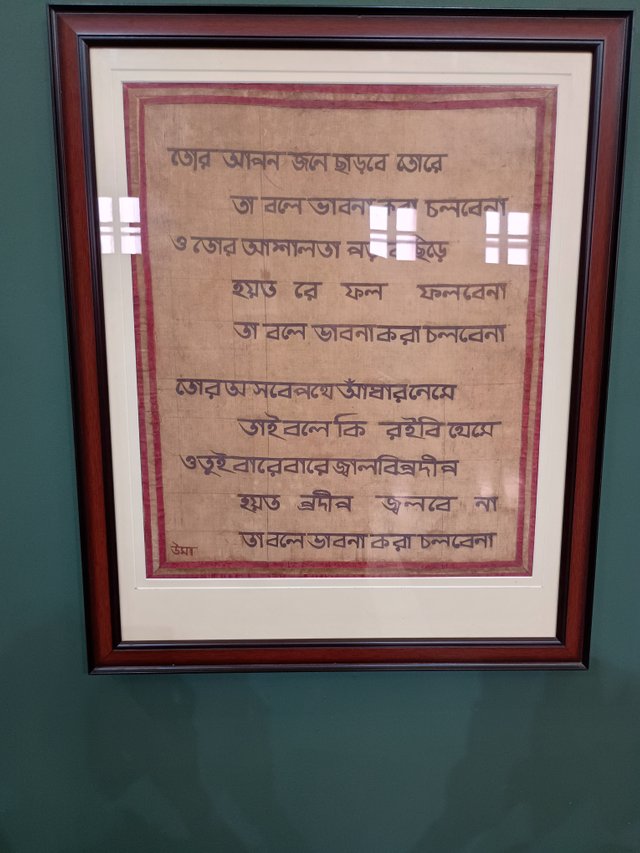 তোর আপন জনে ছাড়বে তোরে
তা বলে ভাবনা করা চলবেনা
ও তোর আশালতা পড়বে ছিঁড়ে
হয়ত রে ফল ফলবেনা
তা বলে ভাবনা করা চলবেনা
তোর অ সবে পথে আঁধার নেমে
তাই বলে কি রইবি থেমে
ও তুই বারে বারে জ্বালবি প্রদীপ
হয়ত প্রদীপ জ্বলবে না
তা বলে ভাবনা করা চলবেনা
উমা